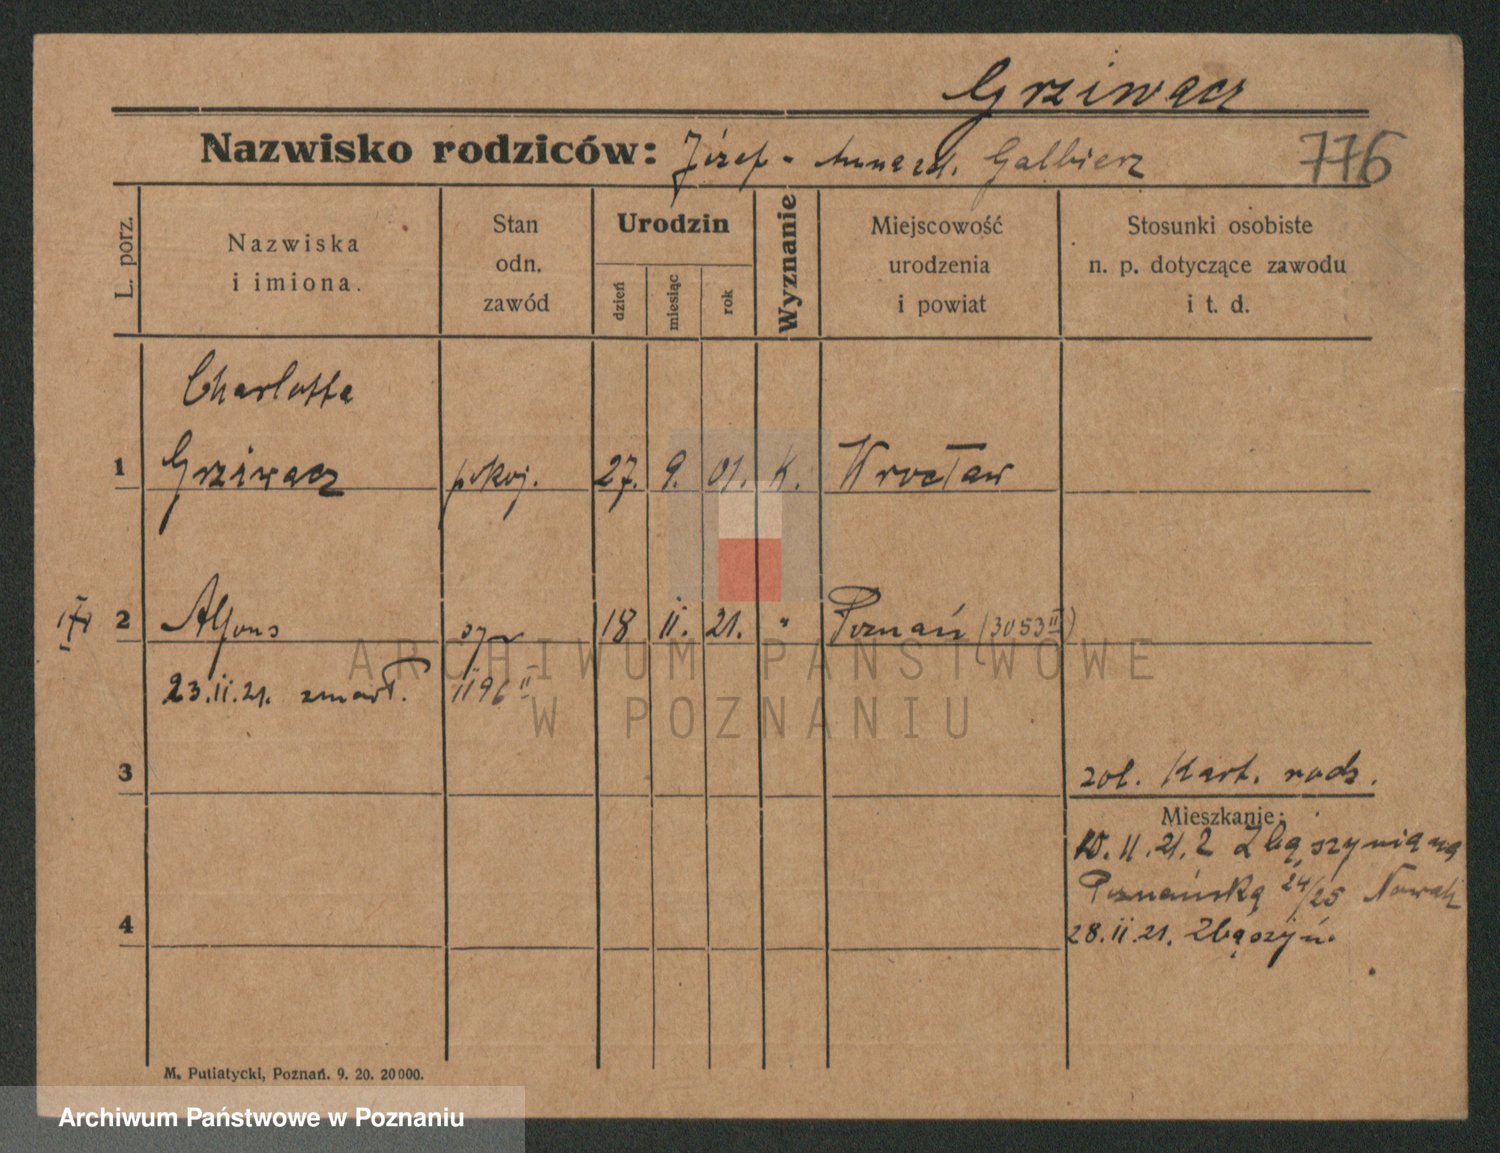 Grziwacz
Nazwisko rodziców: Józef - Anna zd. Galbierz
776
L. porz.
Nazwiska i imiona.
Stan odn. zawód
Urodzin
dzień
miesiąc
rok
Wyznanie
Miejscowość urodzenia i powiat
Stosunki osobiste n. p. dotyczące zawodu i t. d.
Charlotta
1 Grziwacz pokoj. 27. 9. 01. K. Wrocław
2 Alfons syn 18 II. 21. " Poznań (3053 II)
23.II.21. zmarł. 1196 II
ARCHIWUM PAŃSTWOWE
W POZNANIU
3
zol. Kart. rodz.
Mieszkanie:
10.II.21. z Zbąszynia na
Poznańską 24/25 Nowak
4
28.II.21. Zbąszyń.
M. Putiatycki, Poznań. 9. 20. 20000.
Archiwum Państwowe w Poznaniu